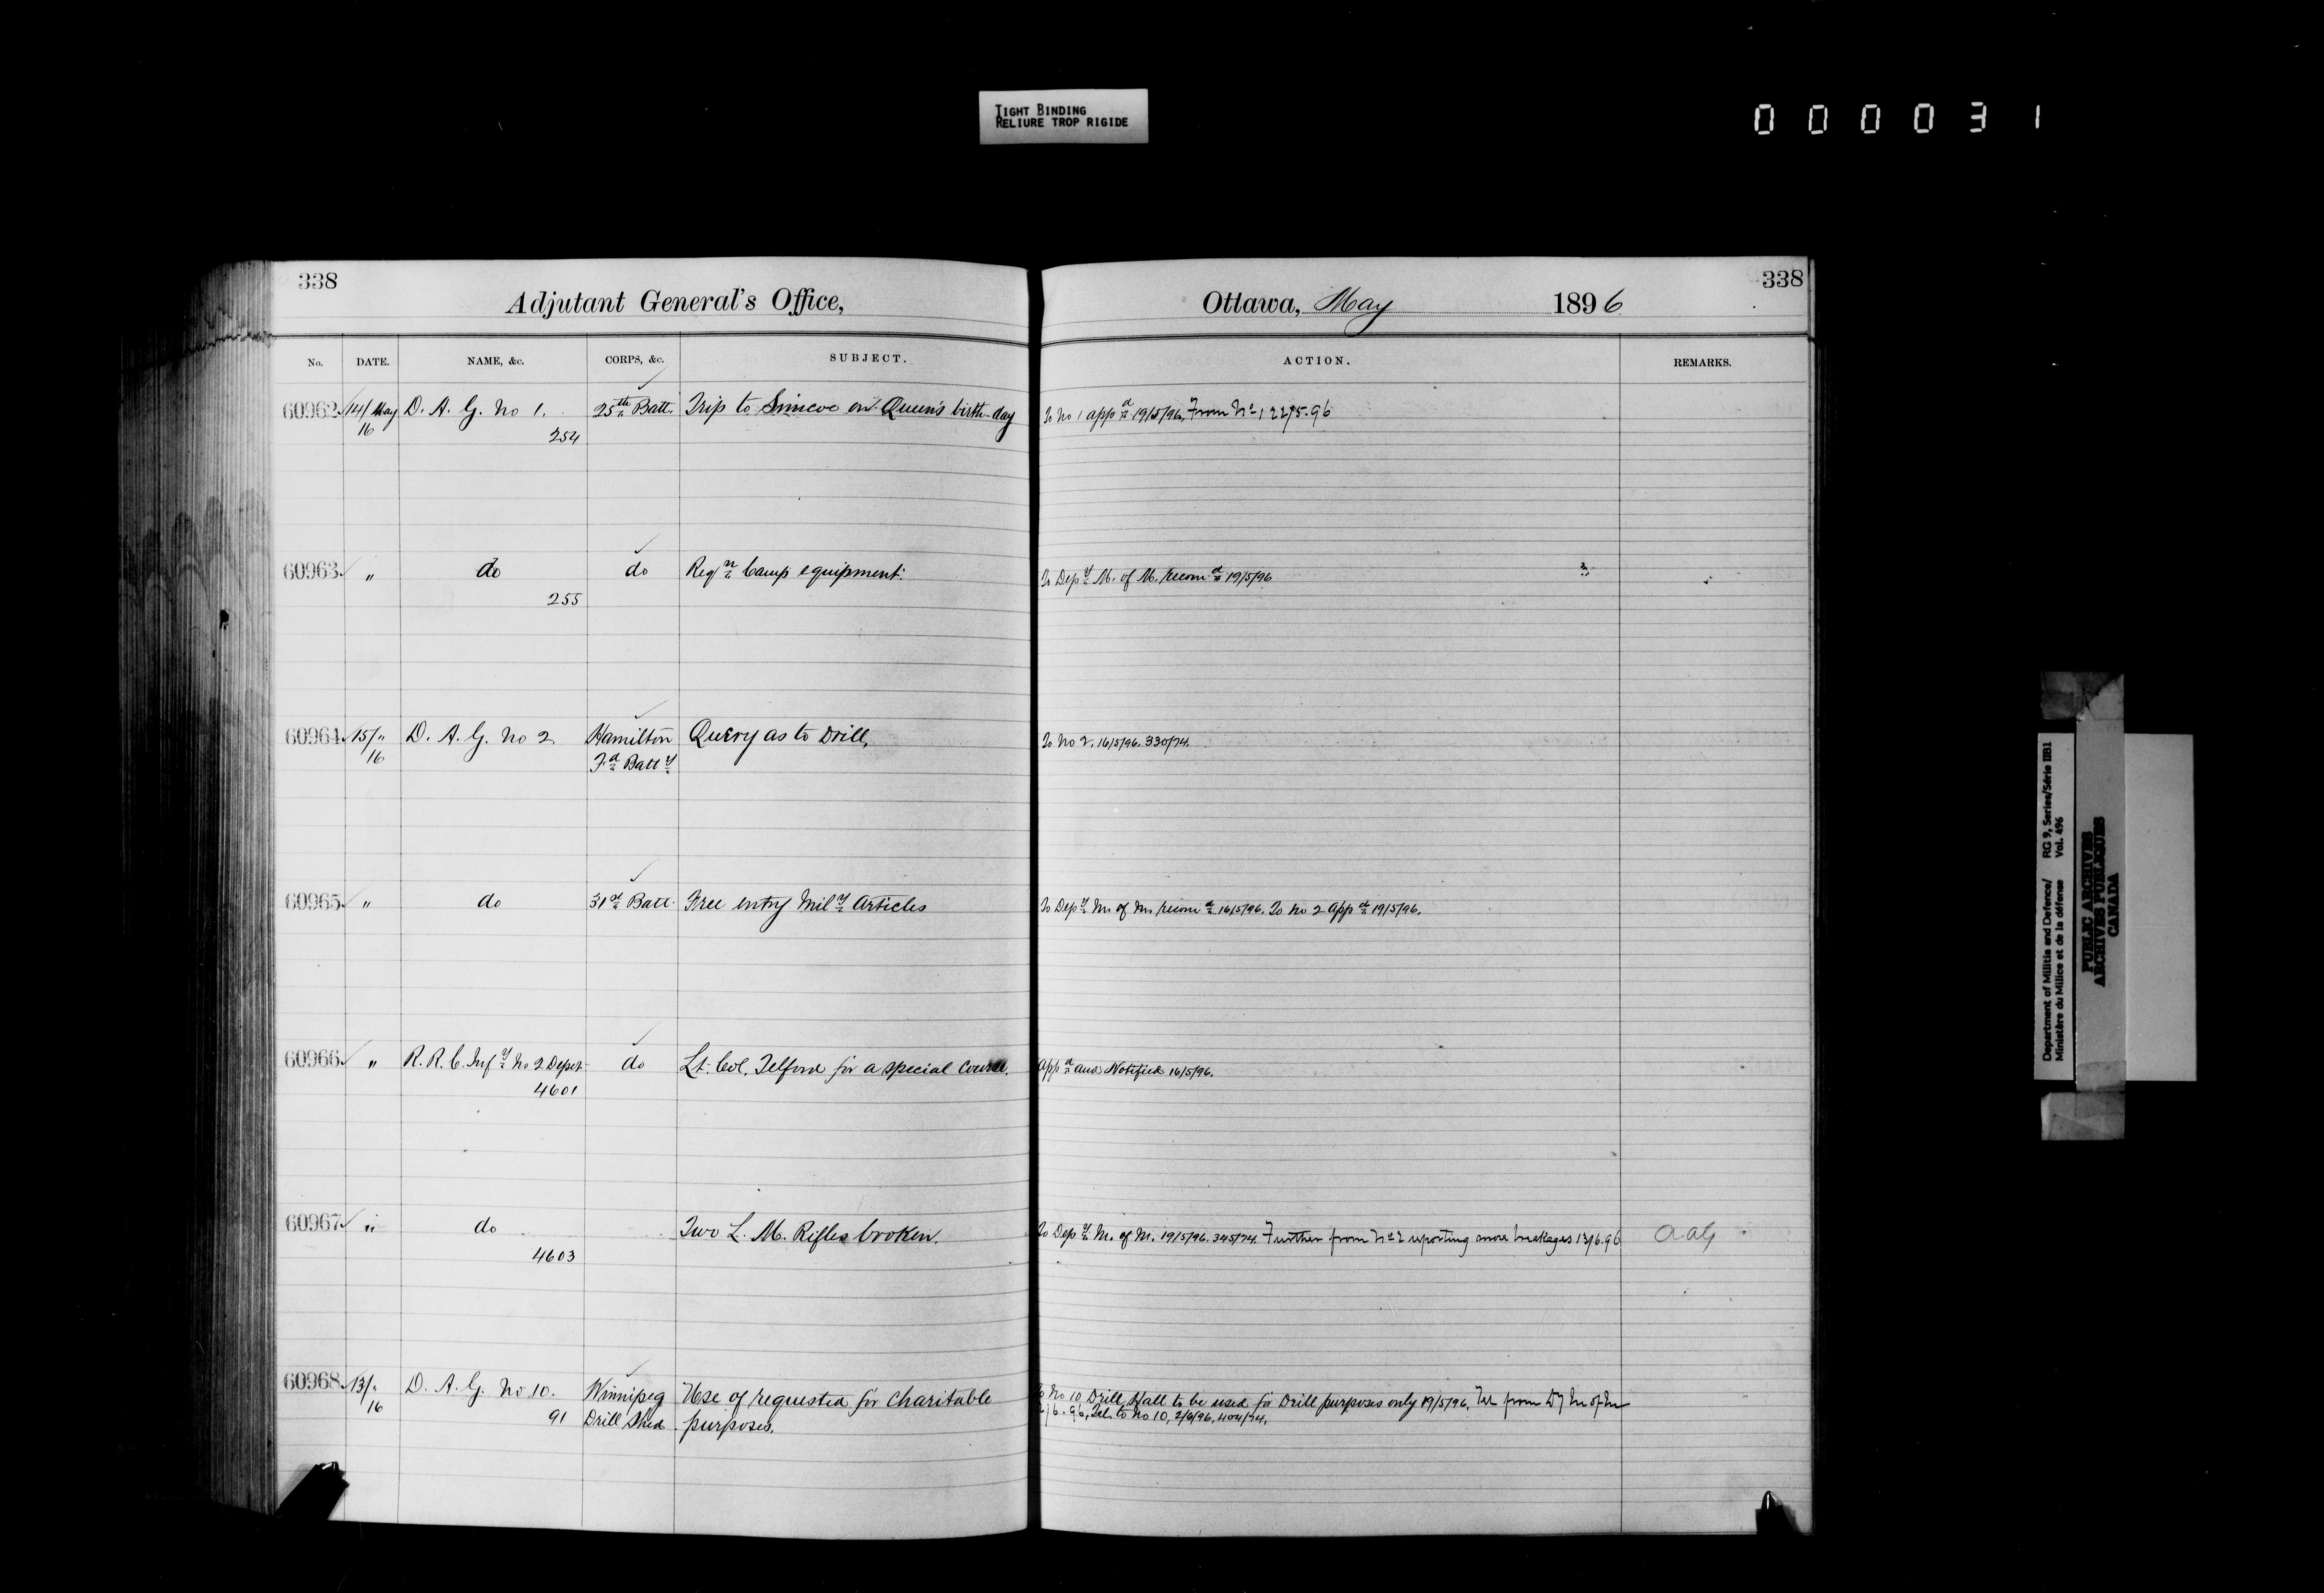 TIGHT BINDING
RELIURE TROP RIGIDE
000031
338
Adjutant General's Office,
No. DATE. NAME, &c. CORPS, &c. SUBJECT.
60962 14/ May D. A. G. No 1. 25th Batt. Trip to Simcoe on Queen's birth-day
16 254
60963 " do do Reqn Camp equipment.
255
60964 15/" D. A. G. No 2. Hamilton Query as to Drill,
16 Fd Batty
60965 " do 31st Batt. Free entry Mily Articles
60966 " R. R. C. Infy No 2 Depot do Lt. Col. Telford for a special course.
4601
60967 " do Two L. M. Rifles broken.
4603
60968 13/" D. A. G. No 10. Winnipeg Use of requested for Charitable
16 91 Drill Shed purposes.
338
Ottawa, May 1896
ACTION. REMARKS.
To No 1 appd 19/5/96. From No 1 22/5.96
To Depy M. of M. recomd 19/5/96
To No 2. 16/5/96. 330/74.
To Depy M. of M. recomd 16/5/96. To No 2 appd 19/5/96.
Appd and Notified 16/5/96.
To Depy M. of M. 19/5/96. 345/74. Further from No 2 reporting more breakages 13/6.96 AAG
To No 10 Drill Hall to be used for Drill purposes only 19/5/96. Tel from Dy M of M
2/6.96, Tel. to No 10, 2/6/96, 404/74.
Department of Militia and Defence/ RG 9, Series/Série IIB1
Ministère du Milice et de la défense Vol. 496
PUBLIC ARCHIVES
ARCHIVES PUBLIQUES
CANADA